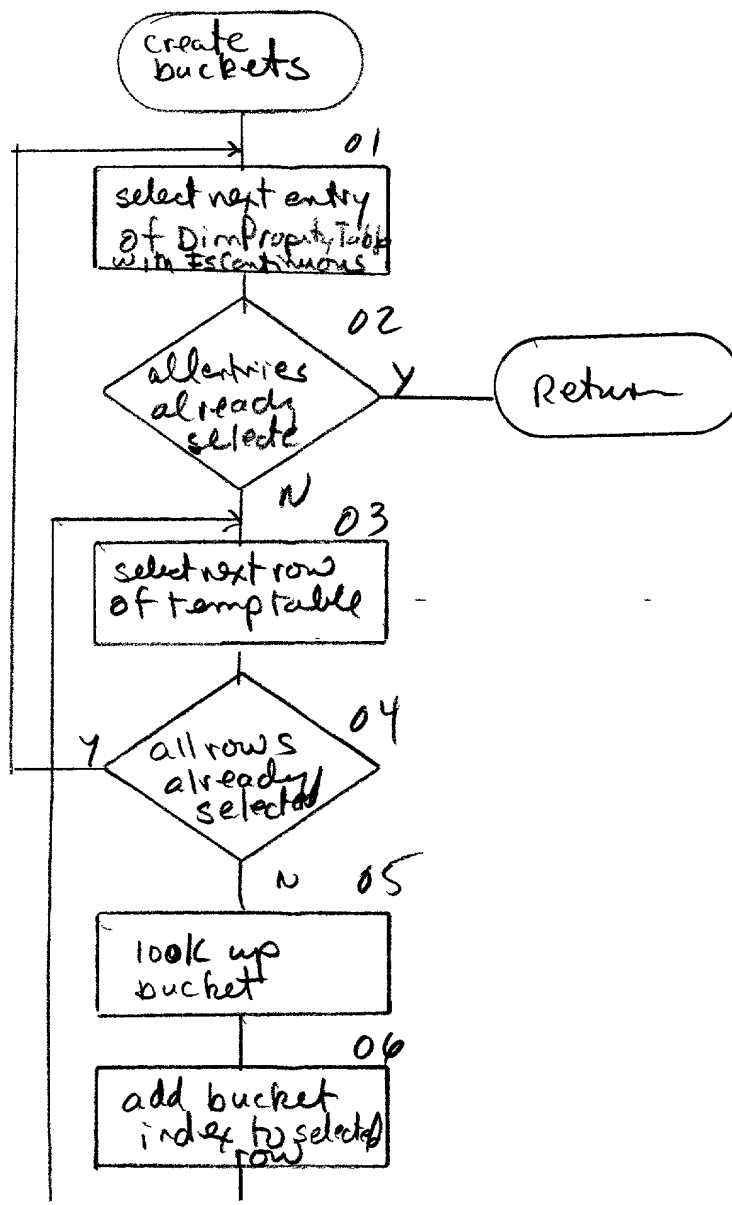 create
buckets
01
select next entry
of DimPropertyTable
with IsContinuous
02
all entries
already
selecte
Y
Return
N
03
select next row
of temp table
04
Y
all rows
already
selected
N
05
look up
bucket
06
add bucket
index to selected
row